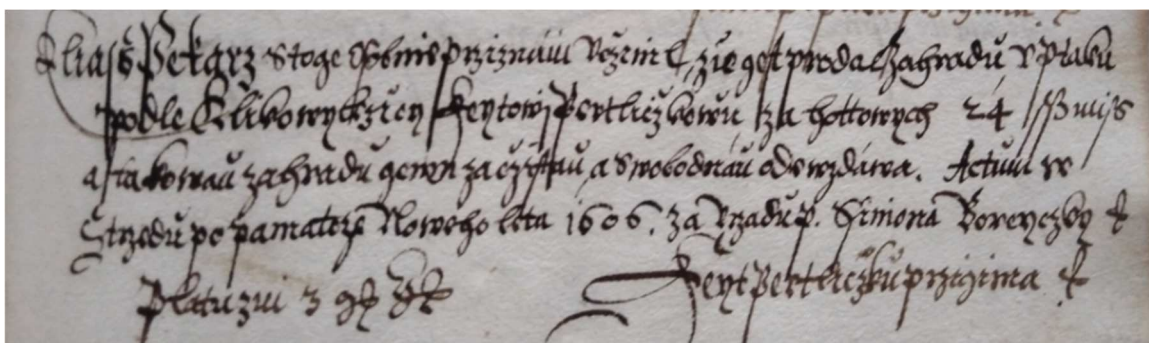 Eliass Pekarz stoge osobnie prziznani Uczinil, zie gest prodal Zahradu v Ptaku
podle Klikowy tkzien Feytowj Pertliczkowu, za hottowych 24 ss mis
a takowau zahradu gemu zaczistau a swobodnau odewzdawa. Actum w
Strzedu po pamatcze Noweho leta 1606. za Urzadu p. Simona Boreyczky
Platu zni 3 gr
Feyt Pertliczku przigima